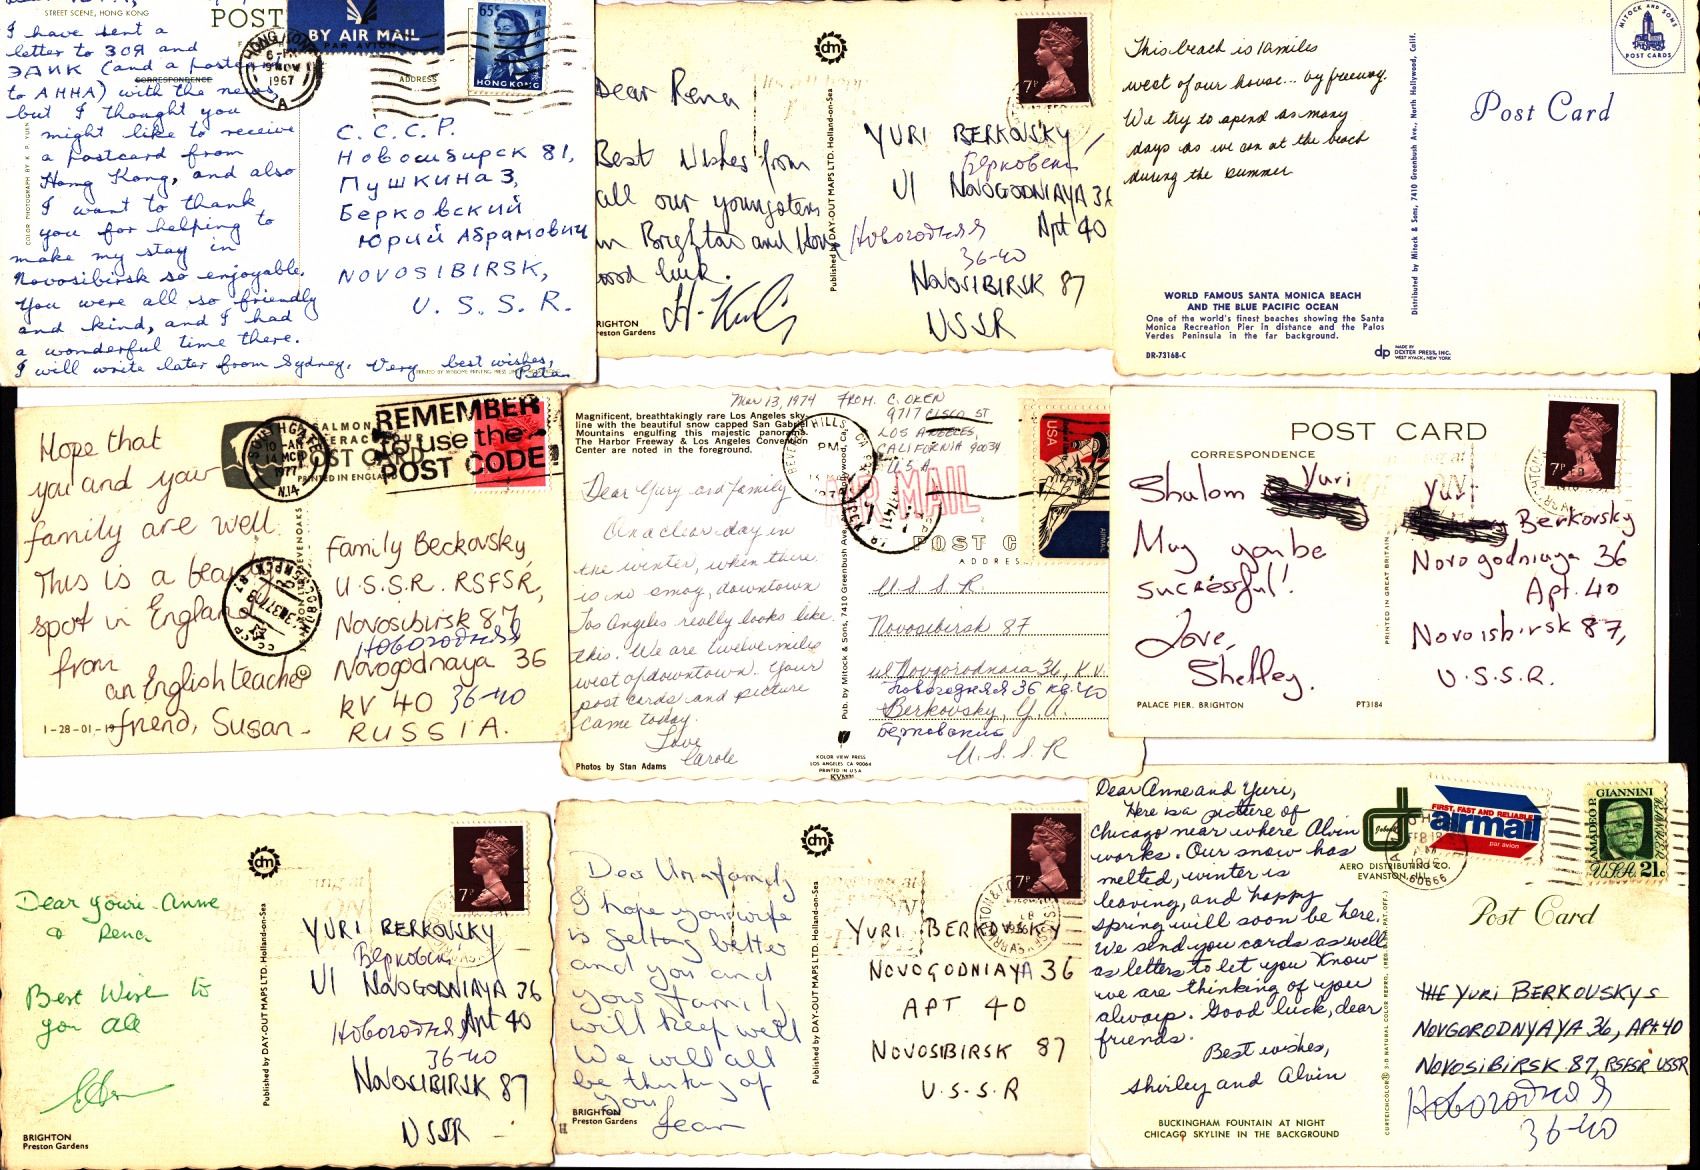 STREET SCENE, HONG KONG
POST
BY AIR MAIL
PAR AVION
65¢
HONG KONG
HONG KONG
6-PM
9 NOV
1967
ADDRESS
CORRESPONDENCE
I have sent a
letter to ЗОЯ and
ЭДИК (and a postcard
to АННА) with the news
but I thought you
might like to receive
a postcard from
Hong Kong, and also
I want to thank
you for helping to
make my stay in
Novosibirsk so enjoyable.
You were all so friendly
and kind, and I had
a wonderful time there.
I will write later from Sydney. Very best wishes,
Peter
COLOR PHOTOGRAPH BY K. P. YUEN
C.C.C.P.
Новосибирск 81,
Пушкина 3,
Берковский
Юрий Абрамович
NOVOSIBIRSK,
U.S.S.R.
dm
7P
Dear Rena
Best Wishes from
all our youngsters
in Brighton and Hove
Good luck.
BRIGHTON
Preston Gardens
Published by DAY-OUT MAPS LTD. Holland-on-Sea
YURI BERKOVSKY
Берковский
Ul NOVOGODNIAYA 36
Apt 40
Новогодняя
36-40
NOVOSIBIRSK 87
USSR
This beach is 12 miles
west of our house... by freeway.
We try to spend as many
days as we can at the beach
during the summer
WORLD FAMOUS SANTA MONICA BEACH
AND THE BLUE PACIFIC OCEAN
One of the world's finest beaches showing the Santa
Monica Recreation Pier in distance and the Palos
Verdes Peninsula in the far background.
DR-73168-C
dp
MADE BY
DEXTER PRESS, INC.
WEST NYACK, NEW YORK
Distributed by Mitock & Sons, 7410 Greenbush Ave., North Hollywood, Calif.
MITOCK AND SONS
POST CARDS
Post Card
SALMON
POST CARD
PRINTED IN ENGLAND
10 -AM
14 MCH
1977
N.14
REMEMBER
to use the
POST CODE!
Hope that
you and your
family are well.
This is a beautiful
spot in England
from
an English teacher
friend, Susan.
1-28-01-19
Family Beckovsky
U.S.S.R. RSFSR,
Novosibirsk 87
Новогодняя
Novogodnaya 36
KV 40 36-40
RUSSIA.
Magnificent, breathtakingly rare Los Angeles sky-
line with the beautiful snow capped San Gabriel
Mountains engulfing this majestic panorama.
The Harbor Freeway & Los Angeles Convention
Center are noted in the foreground.
Mar 13, 1974 FROM: C. OKEN
9717 CISCO ST
LOS ANGELES,
CALIFORNIA 90034
U.S.A.
BEVERLY HILLS, CA
PM
AIR MAIL
USA
AIRMAIL
POST C
ADDRESS
Dear Yury and family
On a clear day in
the winter, when there
is no smog, downtown
Los Angeles really looks like
this. We are twelve miles
west of downtown. Your
post cards and picture
came today.
Love
Carole
Photos by Stan Adams
Pub. by Mitock & Sons, 7410 Greenbush Ave., No. Hollywood, Ca.
KOLOR VIEW PRESS
LOS ANGELES CA 90064
PRINTED IN USA
U.S.S.R.
Novosibirsk 87
ul Novgorodnaia 36, K.V.
Новогодняя 36 кв. 40
Berkovsky, Y.A.
Берковский
U.S.S.R
POST CARD
CORRESPONDENCE
7P
Shalom Yuri
May you be
successful!
Love,
Shelley.
PALACE PIER. BRIGHTON
PT3184
PRINTED IN GREAT BRITAIN
Yuri
Berkovsky
Novogodniaya 36
Apt. 40
Novoisbirsk 87,
U.S.S.R.
dm
7P
Dear Youri Anne
& Rena
Best Wish to
you all
BRIGHTON
Preston Gardens
Published by DAY-OUT MAPS LTD. Holland-on-Sea
YURI BERKOVSKY
Берковский
Ul NOVOGODNIAYA 36
Новогодняя Apt 40
36-40
NOVOSIBIRSK 87
USSR
dm
7P
I hope your wife
is getting better
and you and
your family
will keep well
We will all
be thinking of
you
Jean
BRIGHTON
Preston Gardens
Published by DAY-OUT MAPS LTD. Holland-on-Sea
YURI BERKOVSKY
NOVOGODNIAYA 36
APT 40
NOVOSIBIRSK 87
U.S.S.R
Dear Anne and Yuri,
Here is a picture of
Chicago near where Alvin
works. Our snow has
melted, winter is
leaving, and happy
spring will soon be here.
We send you cards as well
as letters to let you know
we are thinking of you
always. Good luck, dear
friends.
Best wishes,
Shirley and Alvin
BUCKINGHAM FOUNTAIN AT NIGHT
CHICAGO SKYLINE IN THE BACKGROUND
AERO DISTRIBUTING CO.
EVANSTON, ILL.
FIRST, FAST AND RELIABLE
airmail
par avion
AMADEO P. GIANNINI
USA 21c
Post Card
THE YURI BERKOVSKYS
NOVGORODNYAYA 36, APt 40
NOVOSIBIRSK 87, RSFSR USSR
Новогодняя
36-40